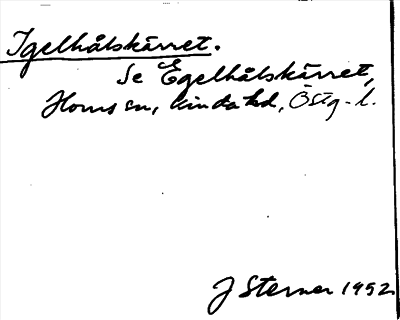 Igelhålskärret.
Se Egelhålskärret,
Horns sn, Kinda hd, Östg. l.
J Sterner 1952